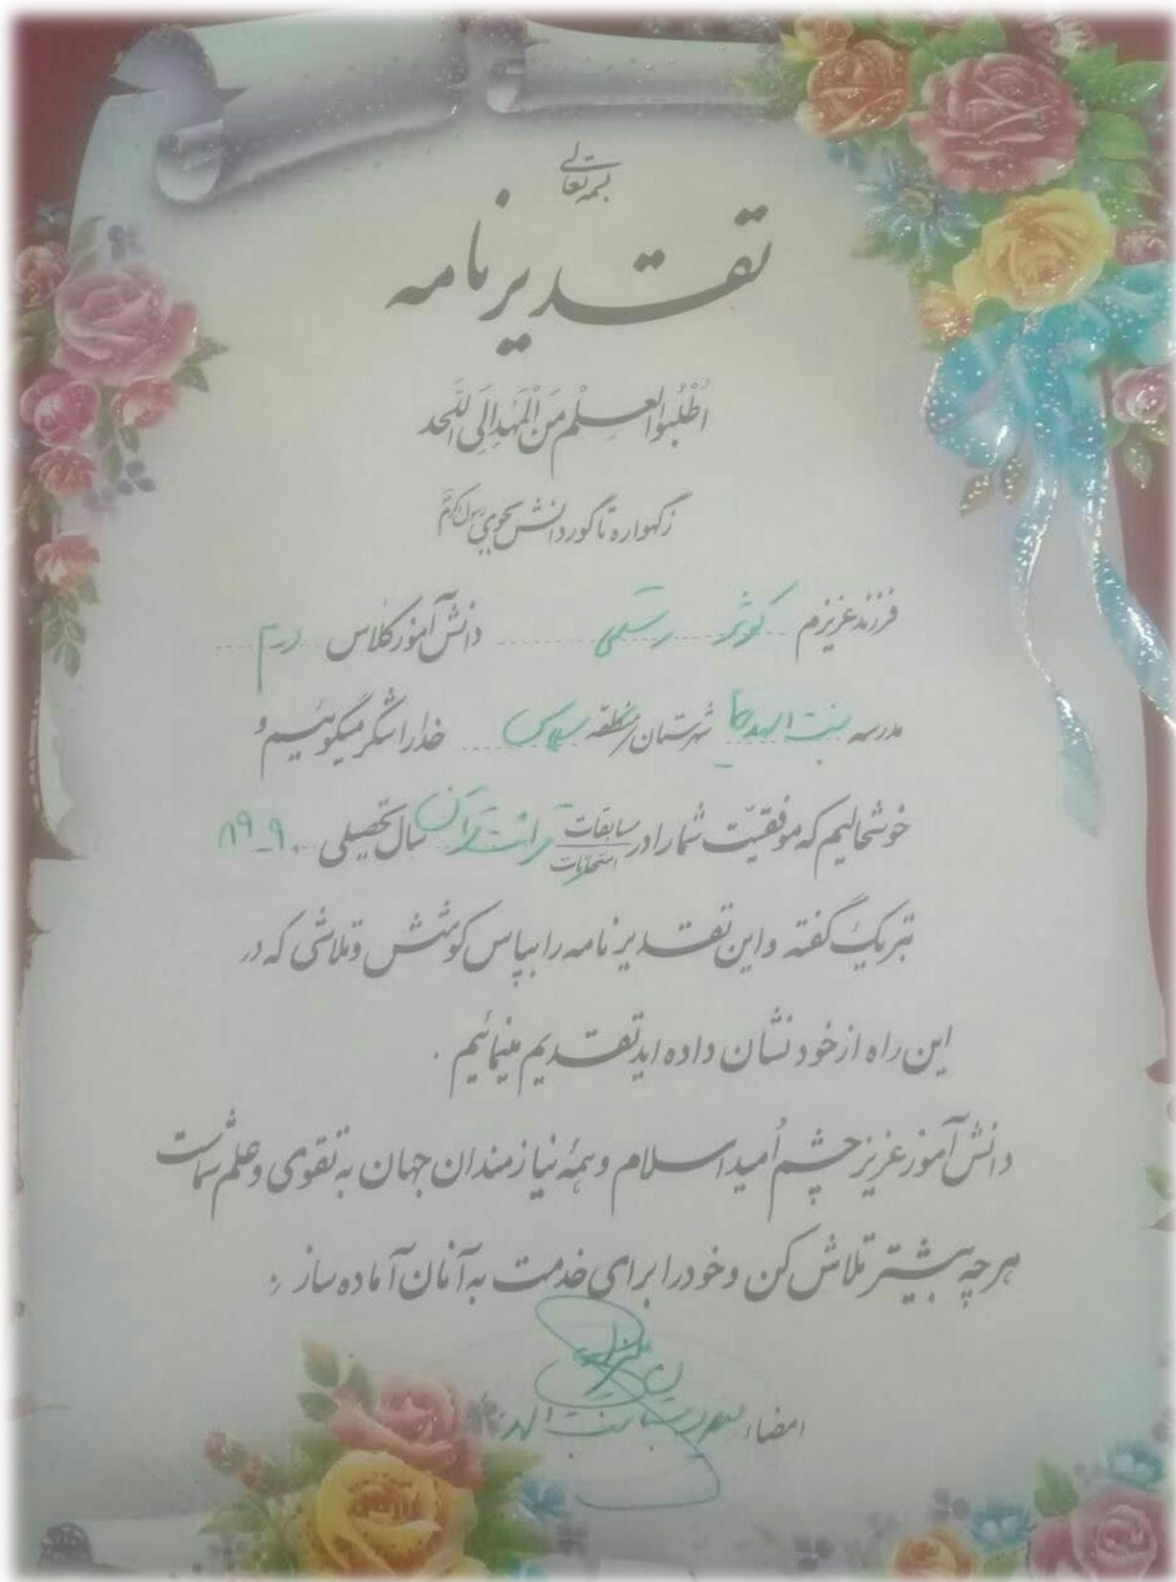 بسمه تعالی
تقدیرنامه
اُطْلُبُوا العِلْمَ مِنَ الْمَهْدِ اِلَی اللَّحد
زگهواره تا گور دانش بجوی رسول اکرم
فرزند عزیزم کوثر رستمی دانش آموز کلاس
مدرسه بنت الهدی شهرستان/منطقه خدا را شکر میگوئیم و
خوشحالیم که موفقیّت شما را در مسابقات/امتحانات قرائت قرآن سال تحصیلی ۹۰-۸۹
تبریک گفته و این تقدیر نامه را بپاس کوشش و تلاشی که در
این راه از خود نشان داده اید تقدیم مینمائیم.
دانش آموز عزیز چشم اُمید اسلام و همهٔ نیازمندان جهان به تقوی و علم شماست
هر چه بیشتر تلاش کن و خود را برای خدمت به آنان آماده ساز
امضاء